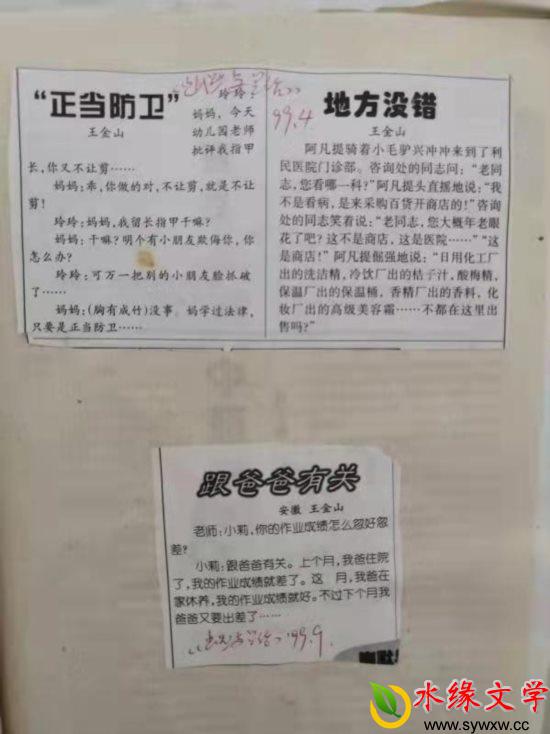 “正当防卫”
王金山
玲玲：
妈妈，今天
幼儿园老师
批评我指甲
长，你又不让剪……
妈妈：乖，你做的对，不让剪，就是不让
剪！
玲玲：妈妈，我留长指甲干嘛？
妈妈：干嘛？明个有小朋友欺侮你，你
怎么办？
玲玲：可万一把别的小朋友脸抓破
了……
妈妈：(胸有成竹)没事。妈学过法律，
只要是正当防卫……
99.4
地方没错
王金山
阿凡提骑着小毛驴兴冲冲来到了利
民医院门诊部。咨询处的同志问：“老同
志，您看哪一科？”阿凡提头直摇地说：“我
不是看病，是来采购百货开商店的！”咨询
处的同志笑着说：“老同志，您大概年老眼
花了吧？这不是商店，这是医院……”“这
是商店！”阿凡提倔强地说：“日用化工厂
出的洗洁精，冷饮厂出的桔子汁，酸梅精，
保温厂出的保温桶，香精厂出的香料，化
妆厂出的高级美容霜……不都在这里出
售吗？”
跟爸爸有关
安徽 王金山
老师：小莉，你的作业成绩怎么忽好忽
差？
小莉：跟爸爸有关。上个月，我爸住院
了，我的作业成绩就差了。这 月，我爸在
家休养，我的作业成绩就好。不过下个月我
爸爸又要出差了……
99.9
幽默
水缘文学
www.sywxw.cc